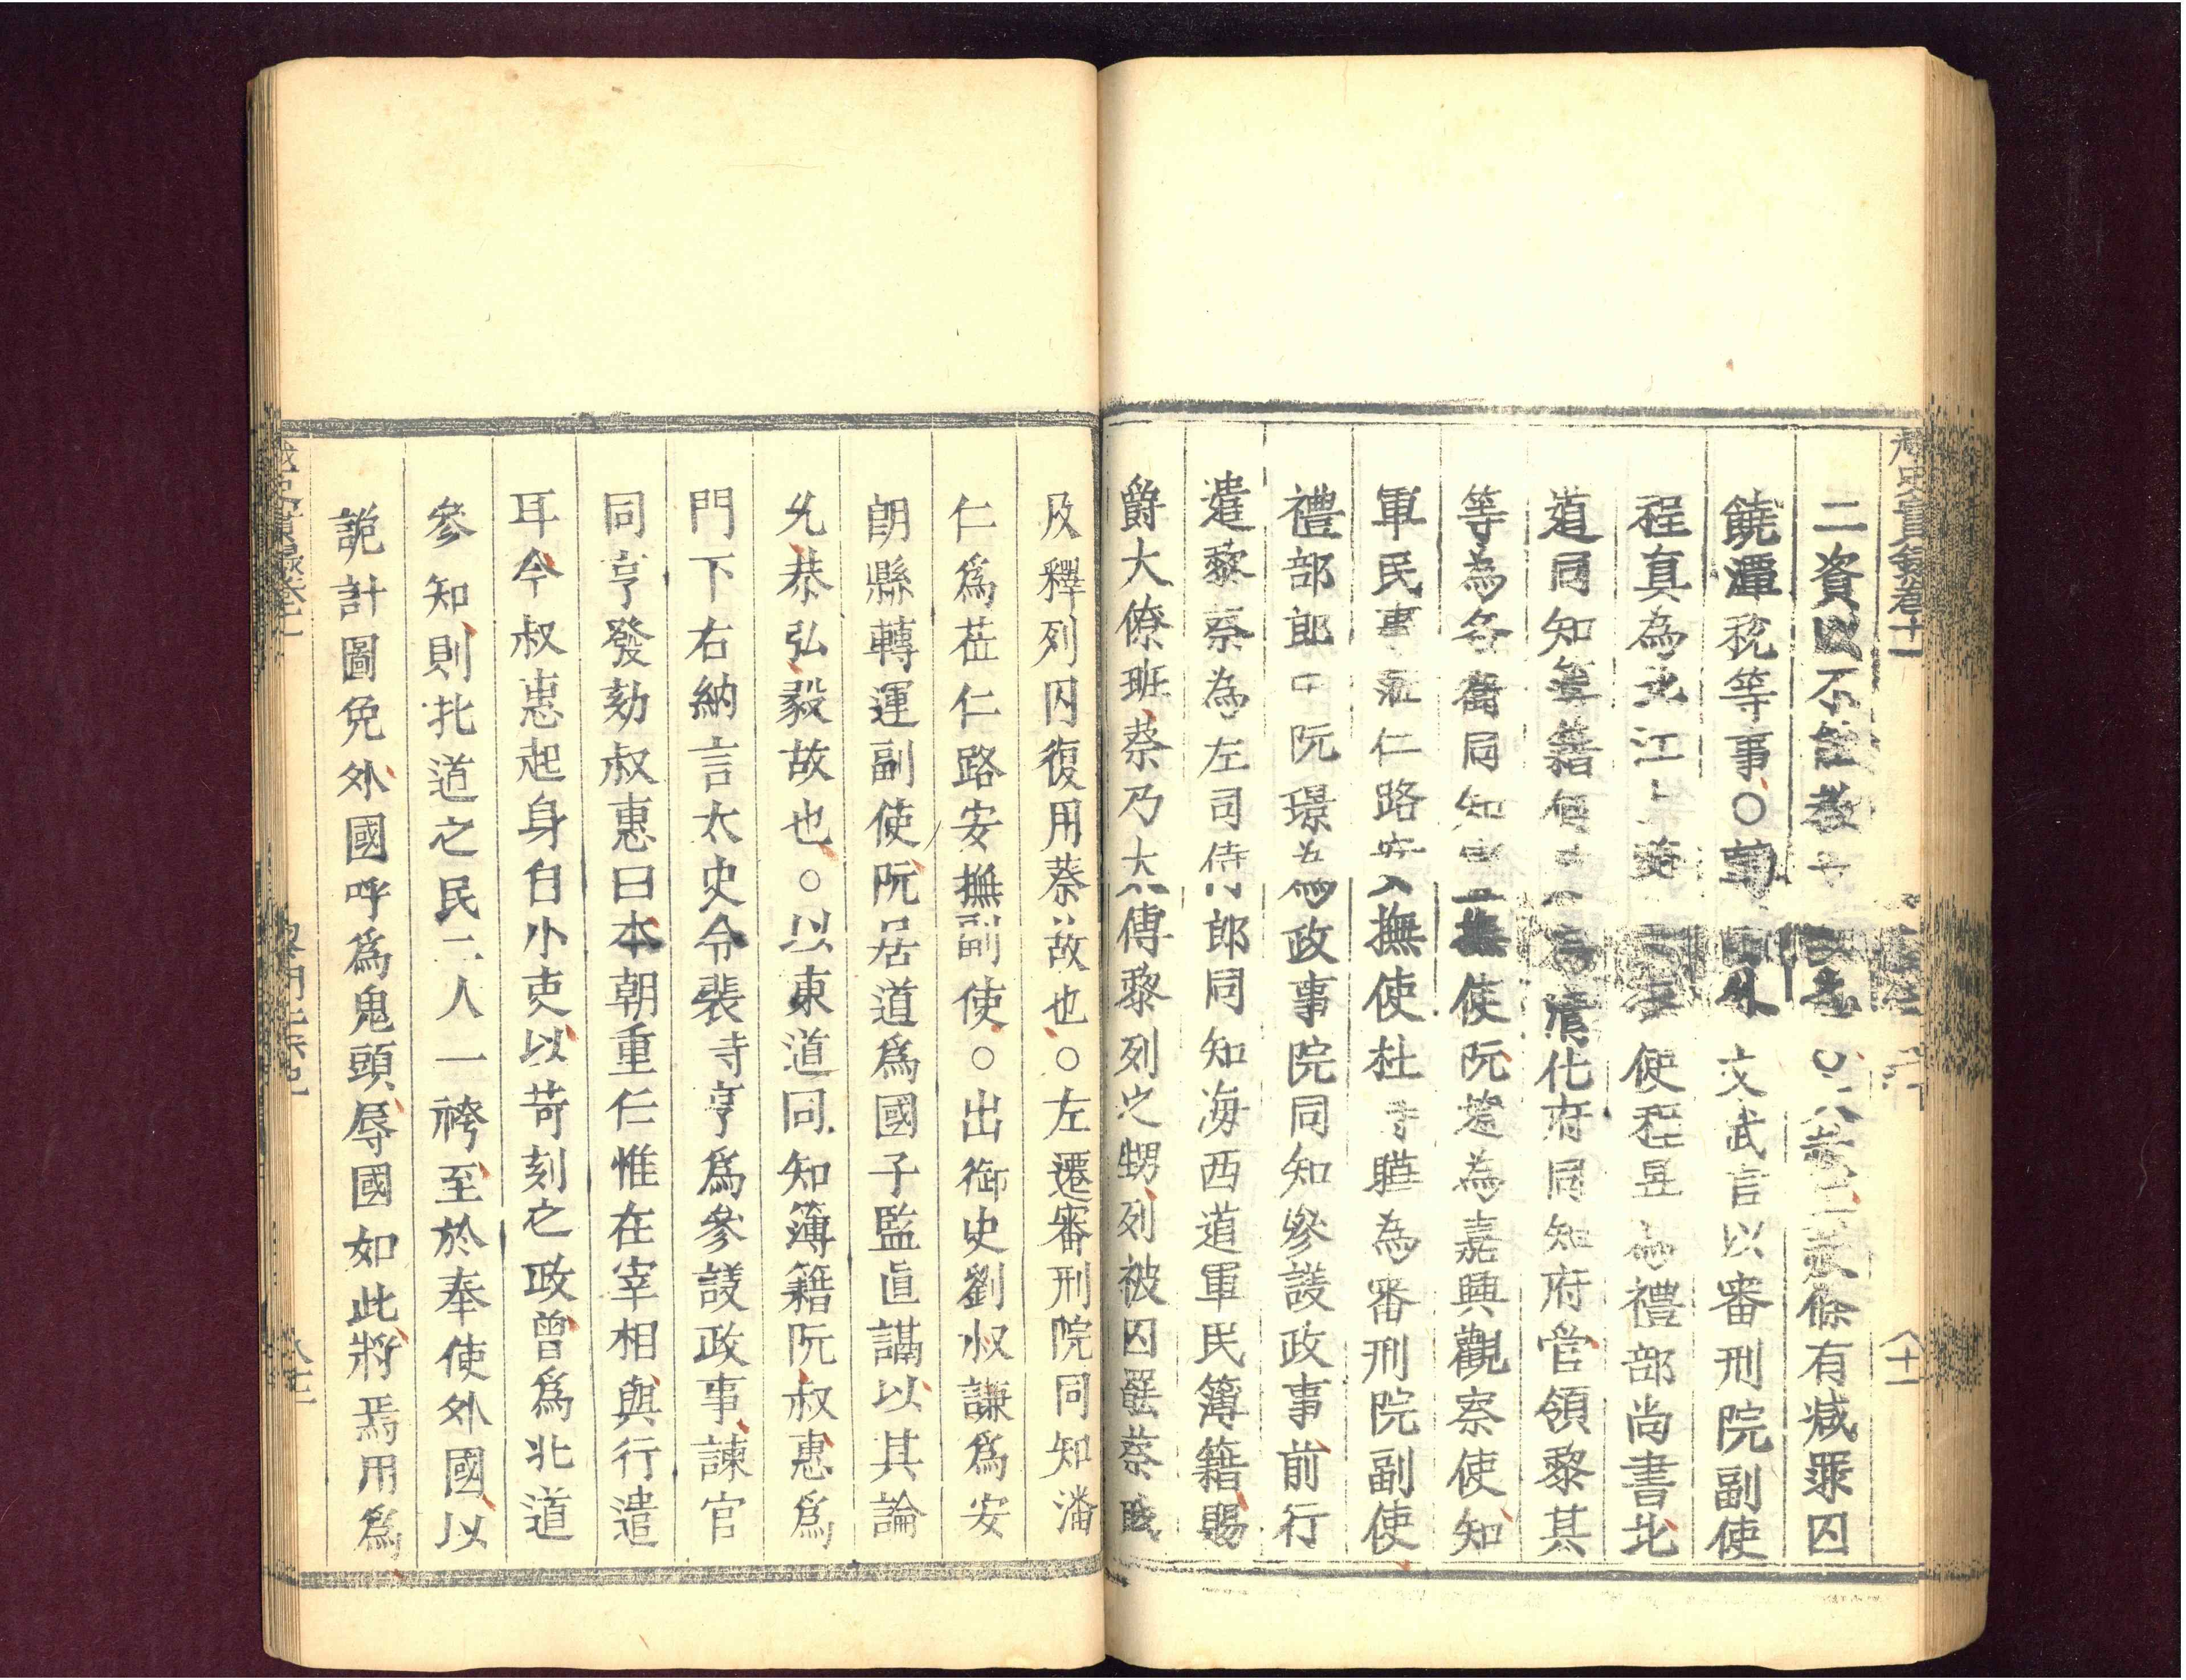 越史實錄卷十一
二資以不能教
饒潭稅等事○ 文武言以審刑院副使
程真為北江 使程昱為禮部尚書北
道同知簿籍何 為清化府同知府管領黎其
等為各衛同知 撫使阮 為嘉興觀察使知
軍民事莅仁路安撫使杜時曄為審刑院副使
禮部郎中阮璟為政事院同知參議政事前行
遣黎蔡為左司侍郎同知海西道軍民簿籍賜
爵大僚班蔡乃大傅黎列之甥列被囚罷蔡職
及釋列囚復用蔡故也○左遷審刑院同知潘
仁爲莅仁路安撫副使○出御史劉叔謙爲安
朗縣轉運副使阮居道爲國子監直講以其論
允恭弘毅故也○以東道同知簿籍阮叔惠爲
門下右納言太史令裴時亨爲參議政事諫官
同亨發劾叔惠曰本朝重任惟在宰相與行遣
耳今叔惠起身自小吏以苛刻之政曾爲北道
參知則北道之民二人一袴至於奉使外國以
詭計圖免外國呼爲鬼頭辱國如此將焉用爲
越史實錄卷十一